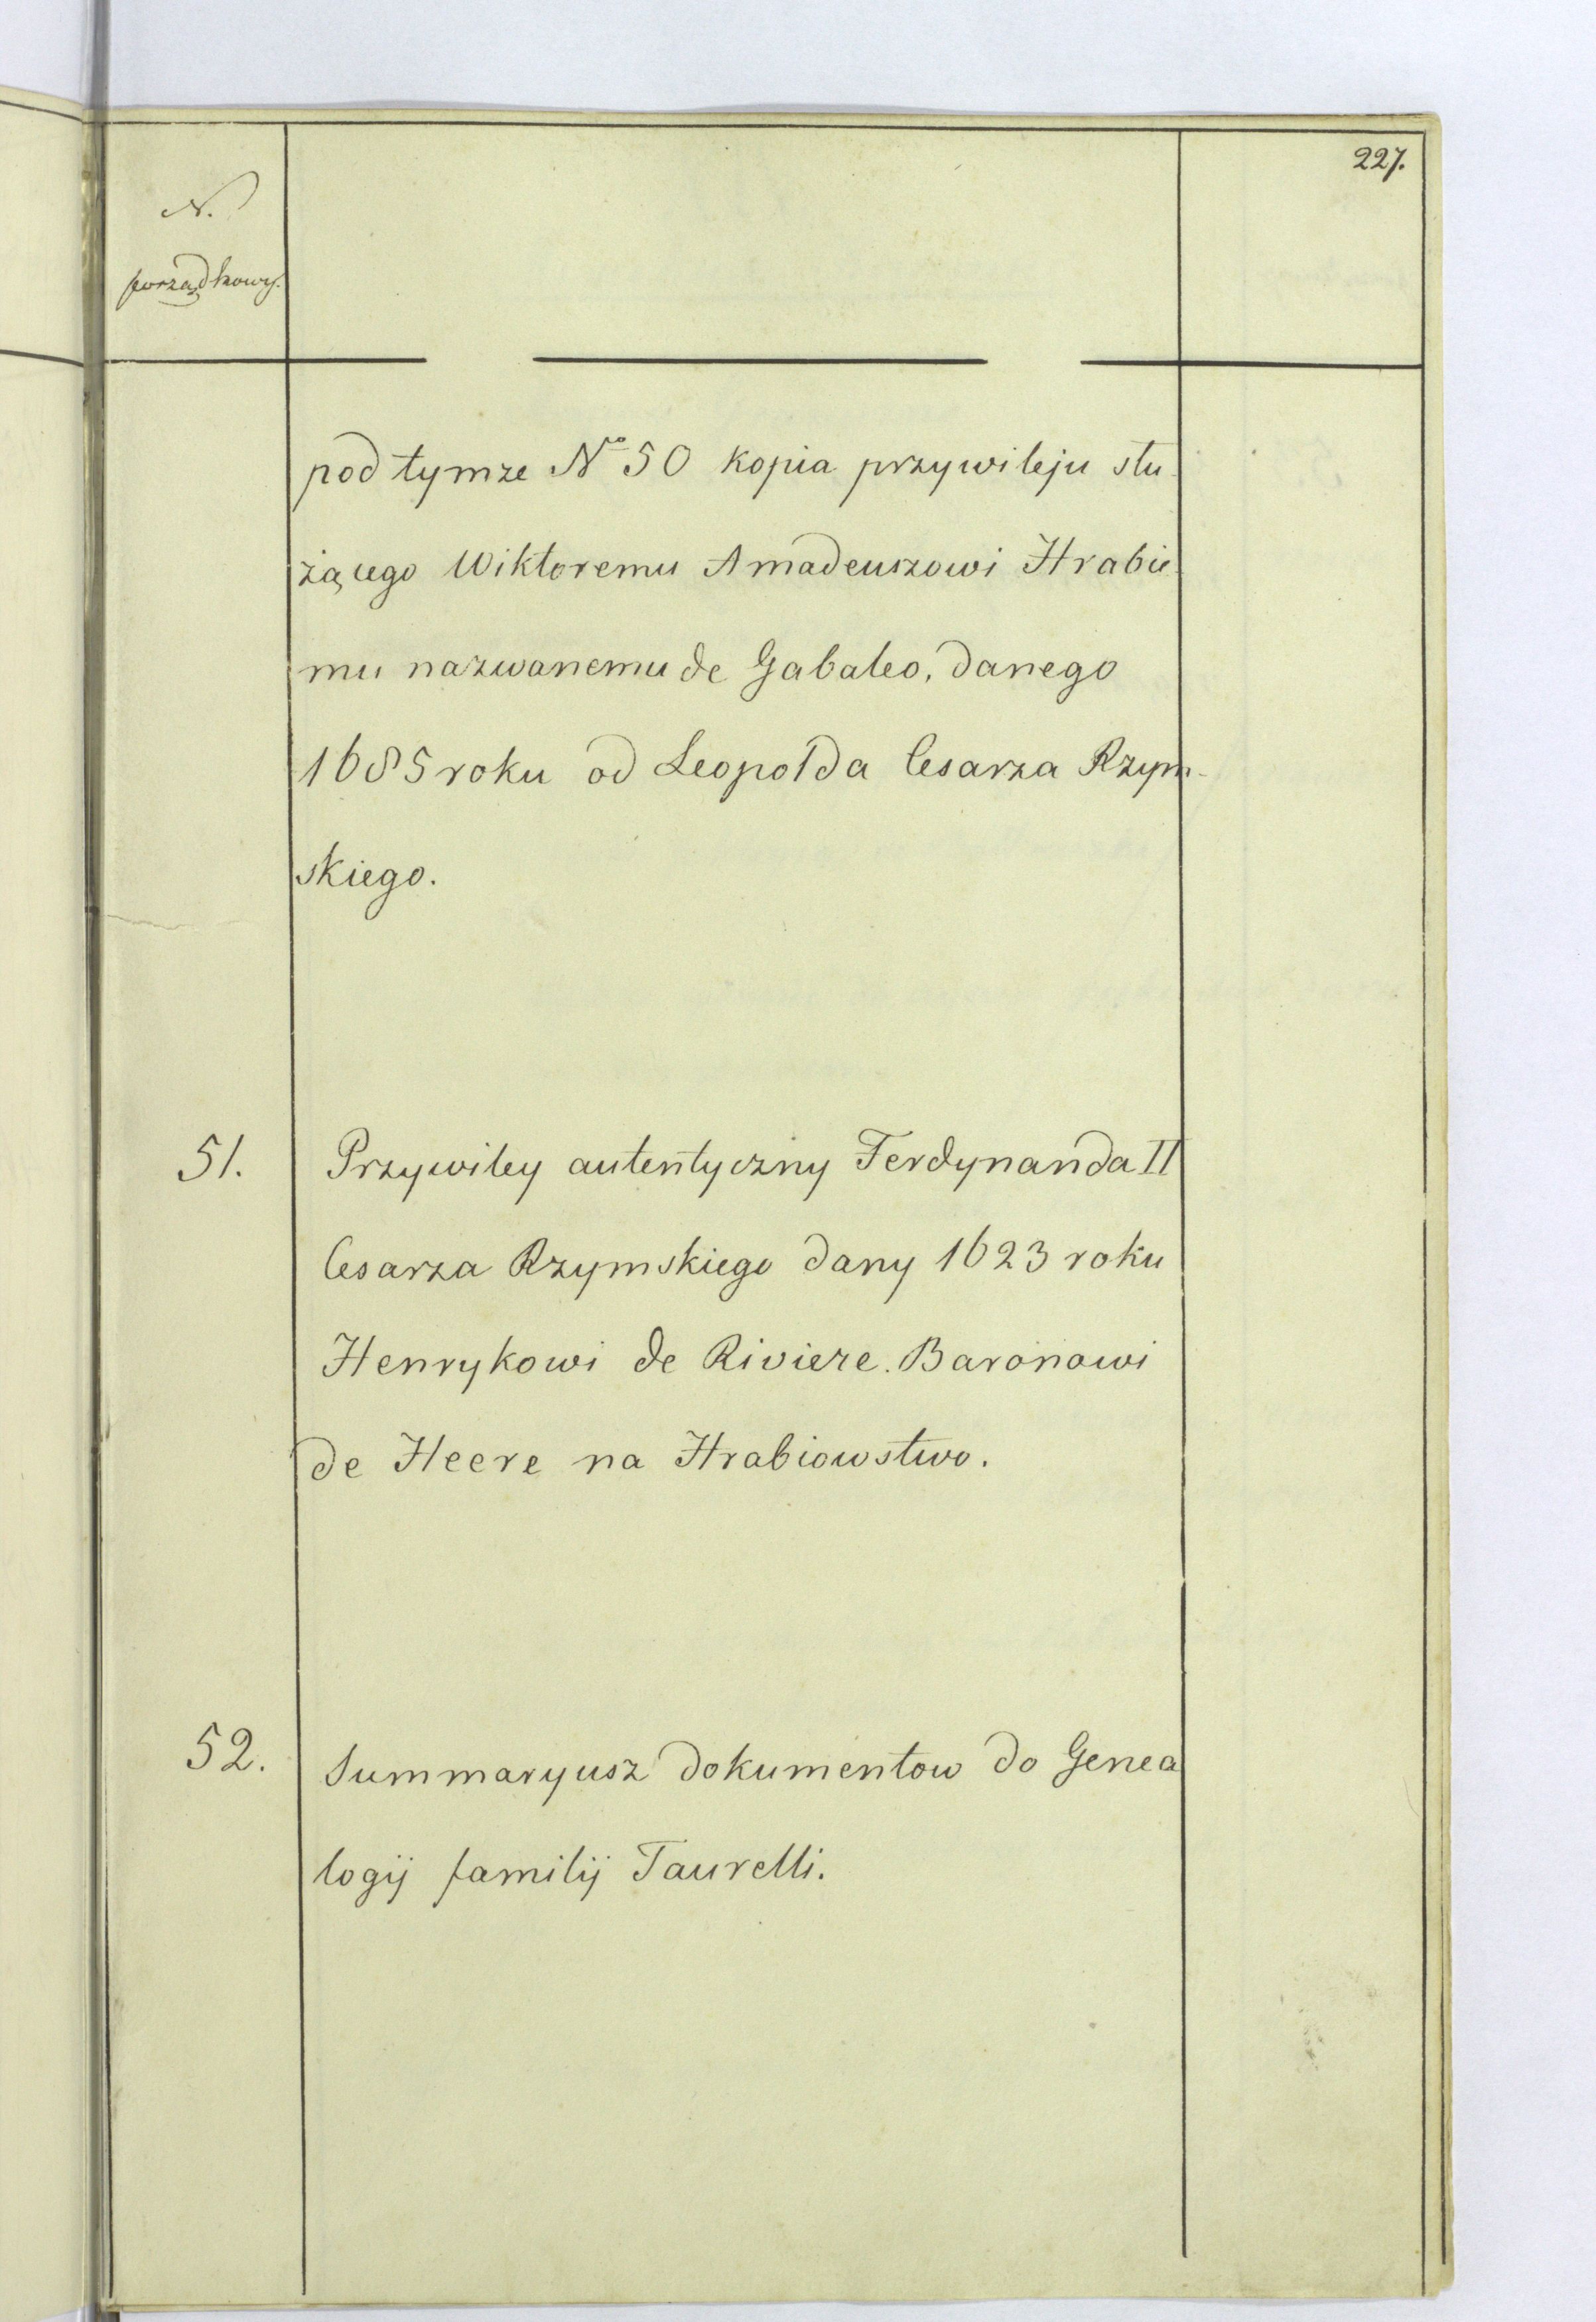 227.
N.
porządkowy.
pod tymze No 50 kopia przywileju słu-
żącego Wiktoremu Amadeuszowi Hrabie-
mu nazwanemu de Gabaleo, danego
1685 roku od Leopolda Cesarza Rzym-
skiego.
51. Przywiley autentyczny Ferdynanda II
Cesarza Rzymskiego dany 1623 roku
Henrykowi de Riviere. Baronowi
de Heere na Hrabiowstwo.
52. Summaryusz dokumentow do Genea
logij familij Taurelli.